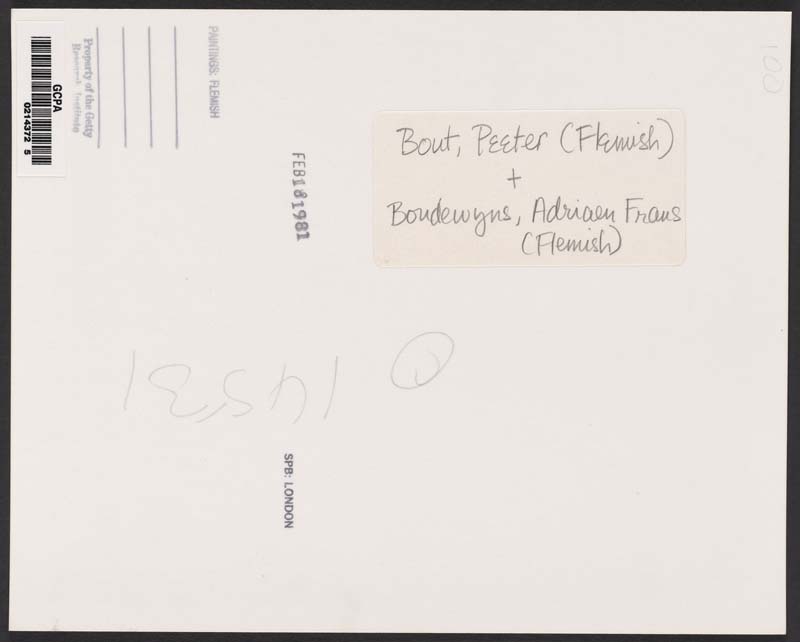 GCPA
0214372 5
Property of the Getty
Research Institute
PAINTINGS: FLEMISH
FEB 18 1981
Bout, Peeter (Flemish)
+
Boudewyns, Adriaen Frans
(Flemish)
100
Q
14531
SPB: LONDON